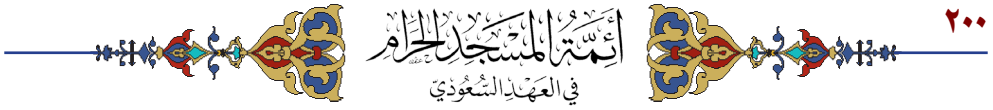 ٢٠٠
أَئِمَّةُ المَسْجِدِ الحَرَامِ
في العَهْدِ السُّعُودِيّ